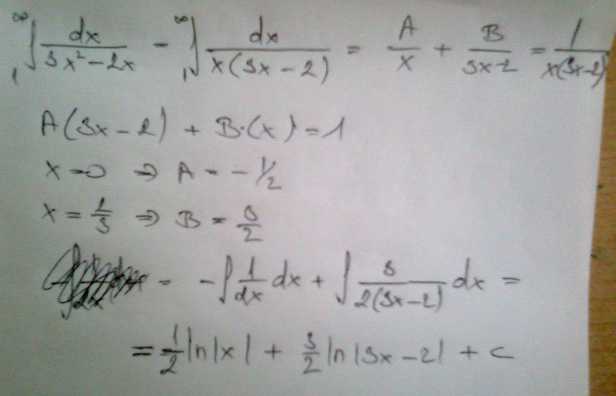 ₁^∞∫ dx/(3x²-2x) - ₁^∞∫ dx/(x(3x-2)) = A/x + B/(3x-2) = 1/(x(3x-2))
A(3x-2) + B·(x) = 1
x=0 ⇒ A = -1/2
x = 2/3 ⇒ B = 3/2
= -∫ 1/(2x) dx + ∫ 3/(2(3x-2)) dx =
= 1/2 ln|x| + 3/2 ln|3x-2| + c